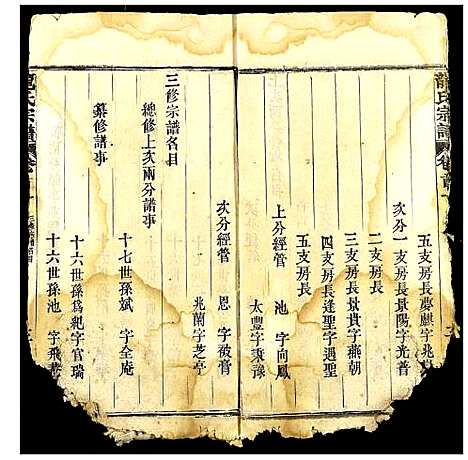 龍氏宗譜 卷首下
五支房長夢麒字兆
次分一支房長景陽字光普
二支房長
三支房長景貴字燕朝
四支房長逢聖字遇聖
五支房長
上分經管 池 字向鳳
太豐字豫
次分經管 恩 字被膏
兆蘭字芝亭
三修宗譜名目
總修上次兩分譜事
十七世孫斌 字全庵
纂修譜事
十六世孫為紀字官瑞
十六世孫池 字飛
龍氏宗譜